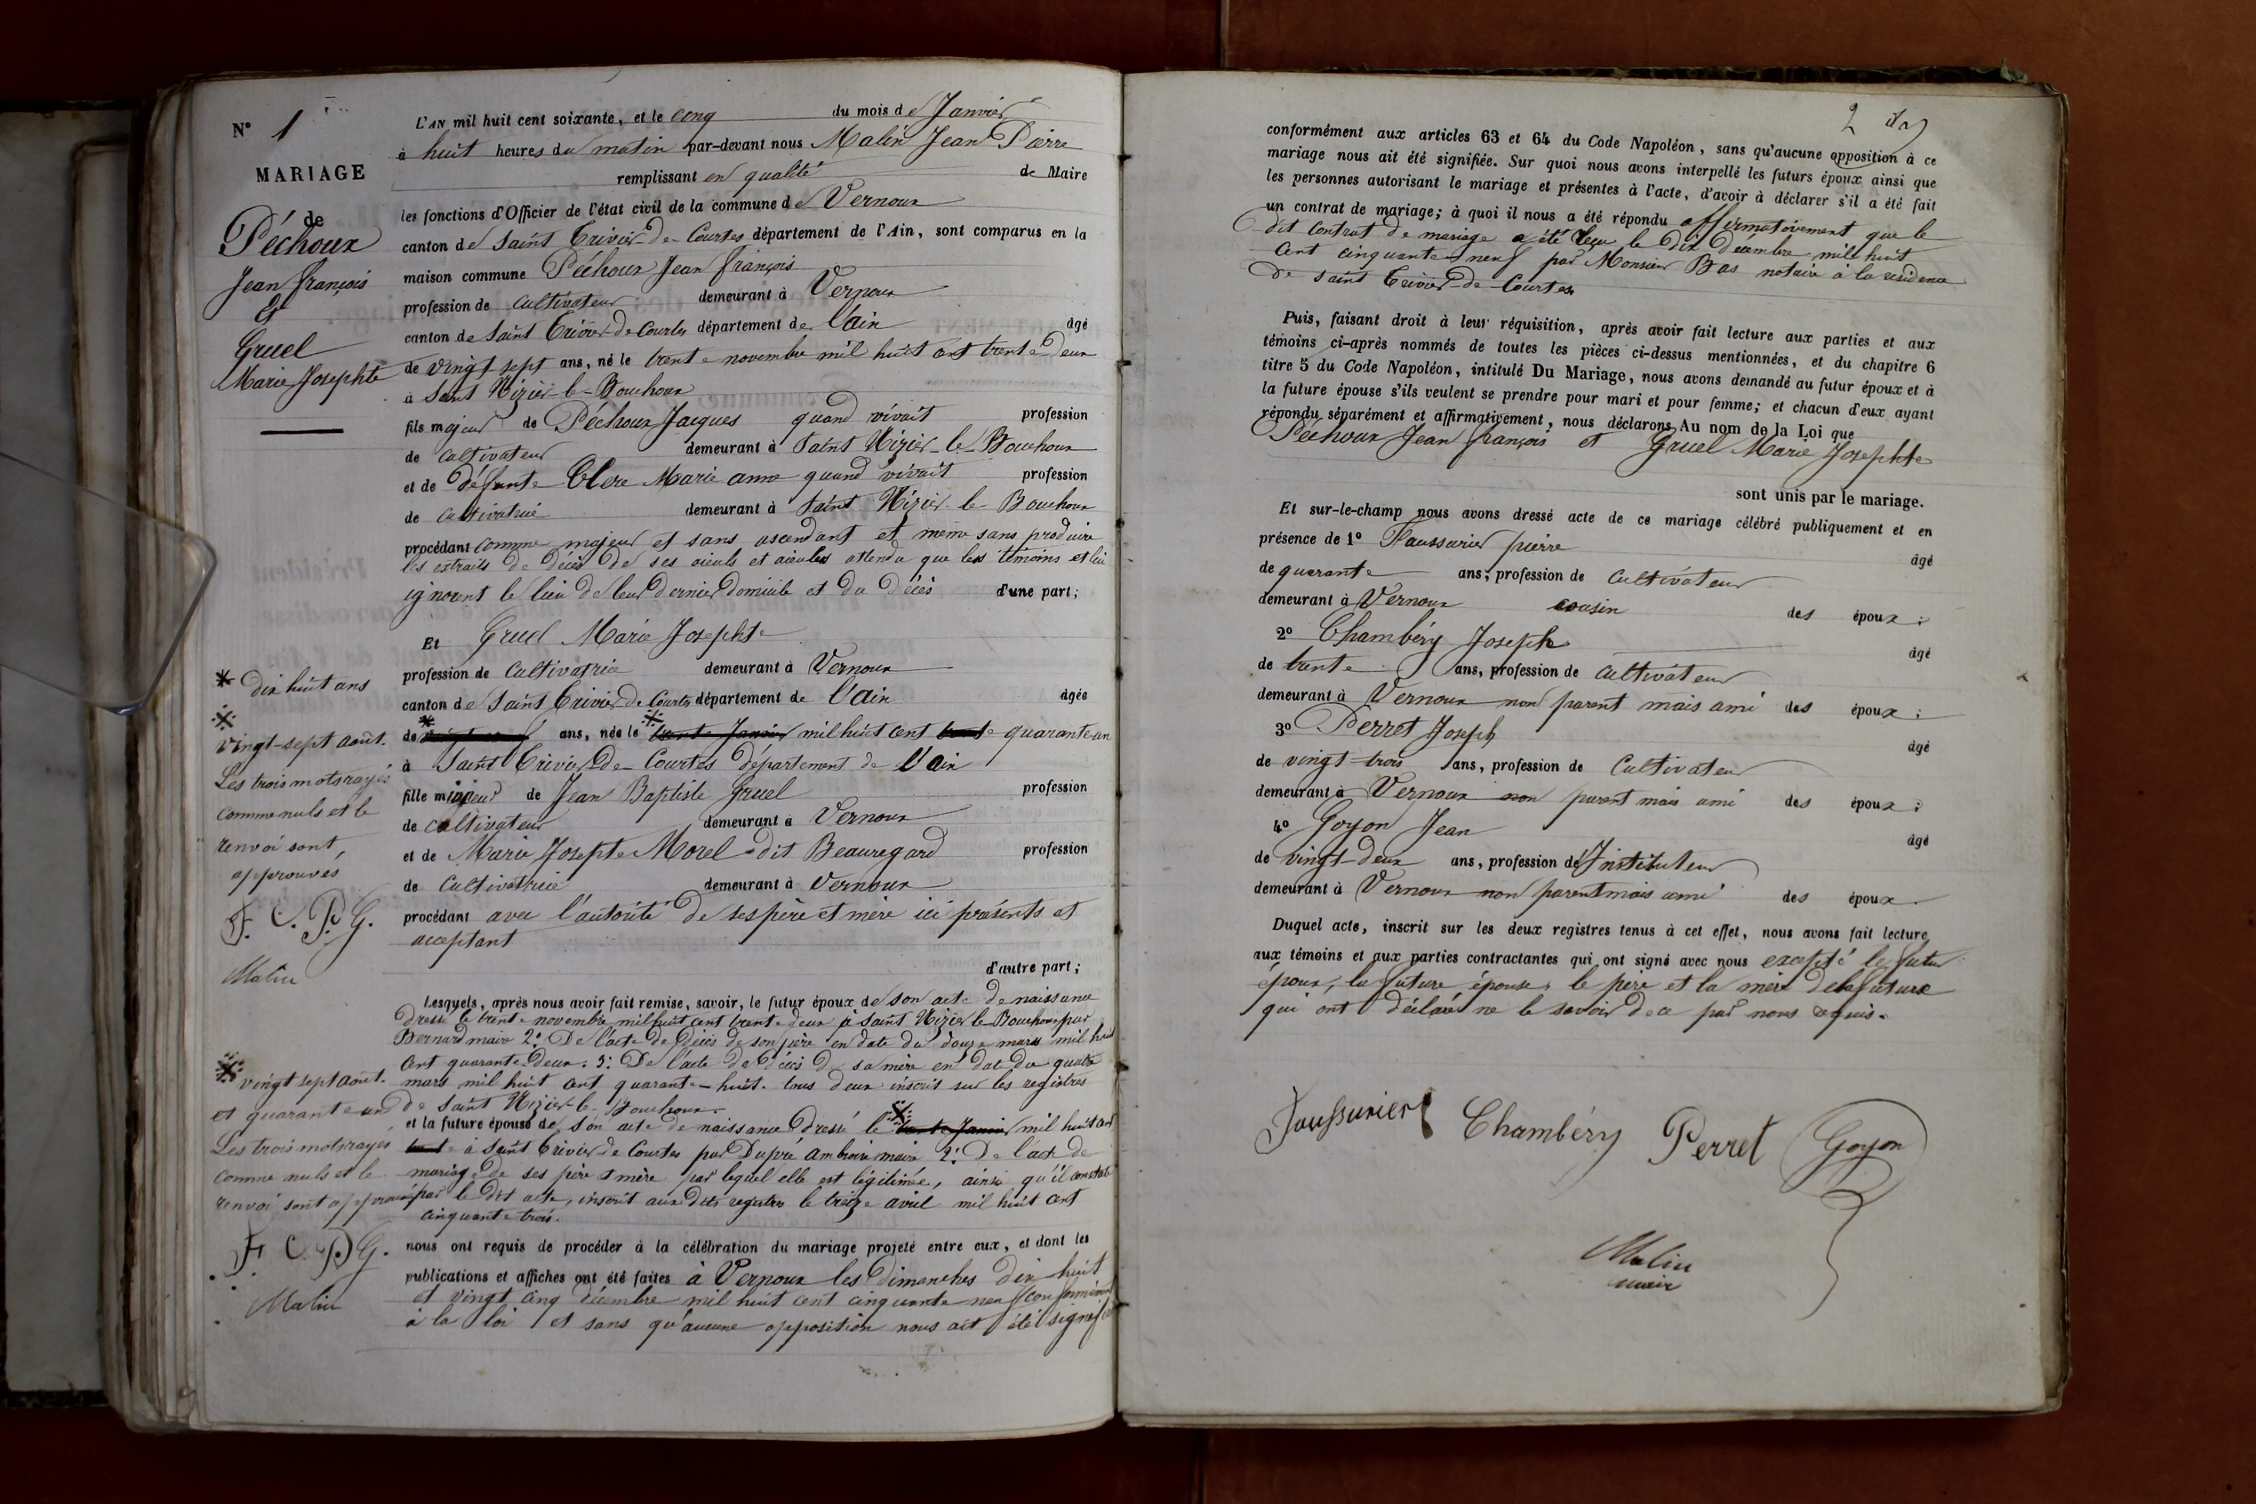 N° 1
MARIAGE
de
Péchoux
Jean françois
&
Gruel
Marie Josephte
L'AN mil huit cent soixante, et le cinq du mois de Janvier
à huit heures du matin par-devant nous Malin Jean Pierre
remplissant en qualité de Maire
les fonctions d'Officier de l'état civil de la commune de Vernoux
canton de Saint Trivier-de-Courtes département de l'Ain, sont comparus en la
maison commune Péchoux Jean françois
profession de cultivateur demeurant à Vernoux
canton de Saint Trivier-de-Courtes département de l'ain âgé
de vingt sept ans, né le trente novembre mil huit cent trente-Deux
à Saint Nizier-le-Bouchoux
fils majeur de Péchoux Jacques quand vivait profession
de cultivateur demeurant à Saint Nizier-le-Bouchoux
et de défunte Clere Marie anne quand vivait profession
de cultivatrice demeurant à Saint Nizier-le-Bouchoux
procédant comme majeur et sans ascendant et même sans produire
les extraits de Décès de ses aieuls et aieules attendu que les témoins et lui
ignorent le lieu de leur dernier domicile et du décès d'une part;
Et Gruel Marie Josephte
profession de cultivatrice demeurant à Vernoux
canton de Saint Trivier-de-Courtes département de l'ain âgée
* dix huit ans
de * ans, née le ※ trente Janvier mil huit cent trente quarante un
※ vingt-sept août.
à Saint Trivier-de-Courtes département de l'ain
Les trois mots rayés
comme nuls et le
renvoi sont
approuvés
F. C. P. G.
Malin
fille mineur de Jean Baptiste Gruel profession
de cultivateur demeurant à Vernoux
et de Marie Josephte Morel dit Beauregard profession
de cultivatrice demeurant à Vernoux
procédant avec l'autorité de ses père et mère ici présents et
acceptant
d'autre part;
Lesquels, après nous avoir fait remise, savoir, le futur époux de son acte de naissance
dressé le trente novembre mil huit cent trente-deux à Saint Nizier-le-Bouchoux par
Bernard maire 2° De l'acte de décès de son père en date du douze mars mil huit
cent quarante-Deux. 3° De l'acte de décès de sa mère en date du quatre
mars mil huit cent quarante-huit. tous deux inscrit sur les registres
de Saint Nizier-le-Bouchoux.
※ vingt sept août.
et quarante un
Les trois mots rayés
comme nuls et le
renvoi sont approuvés
F. C. P. G.
Malin
et la future épouse de son acte de naissance dressé le ※ trente Janvier mil huit cent
trente à Saint Trivier de Courtes par Dupré ambroise maire 2° De l'acte de
mariage de ses père et mère par lequel elle est légitimée, ainsi qu'il constate
par le dit acte, inscrit aux dits registres le treize avril mil huit cent
cinquante trois.
nous ont requis de procéder à la célébration du mariage projeté entre eux, et dont les
publications et affiches ont été faites à Vernoux les dimanches dix huit
et vingt cinq décembre mil huit cent cinquante neuf conformément
à la loi et sans qu'aucune opposition nous ait été signifiée
2
conformément aux articles 63 et 64 du Code Napoléon, sans qu'aucune opposition à ce
mariage nous ait été signifiée. Sur quoi nous avons interpellé les futurs époux ainsi que
les personnes autorisant le mariage et présentes à l'acte, d'avoir à déclarer s'il a été fait
un contrat de mariage; à quoi il nous a été répondu affirmativement que le
dit contrat de mariage a été reçu le dix décembre mil huit
cent cinquante neuf par Monsieur Bas notaire à la residence
de Saint Trivier-de-Courtes.
Puis, faisant droit à leur réquisition, après avoir fait lecture aux parties et aux
témoins ci-après nommés de toutes les pièces ci-dessus mentionnées, et du chapitre 6
titre 5 du Code Napoléon, intitulé Du Mariage, nous avons demandé au futur époux et à
la future épouse s'ils veulent se prendre pour mari et pour femme; et chacun d'eux ayant
répondu séparément et affirmativement, nous déclarons Au nom de la Loi que
Péchoux Jean françois et Gruel Marie Josephte
sont unis par le mariage.
Et sur-le-champ nous avons dressé acte de ce mariage célébré publiquement et en
présence de 1° Faussurier pierre âgé
de quarante ans, profession de cultivateur
demeurant à Vernoux cousin des époux;
2° Chambéry Joseph âgé
de trente ans, profession de cultivateur
demeurant à Vernoux non parent mais ami des époux;
3° Perret Joseph âgé
de vingt-trois ans, profession de Cultivateur
demeurant à Vernoux non parent mais ami des époux;
4° Goyon Jean âgé
de vingt-Deux ans, profession d'Instituteur
demeurant à Vernoux non parent mais ami des époux.
Duquel acte, inscrit sur les deux registres tenus à cet effet, nous avons fait lecture
aux témoins et aux parties contractantes qui ont signé avec nous excepté le futur
époux, la future épouse, le père et la mère de la future
qui ont déclaré ne le savoir de ce par nous requis.
Faussurier Chambéry Perret Goyon
Malin
maire